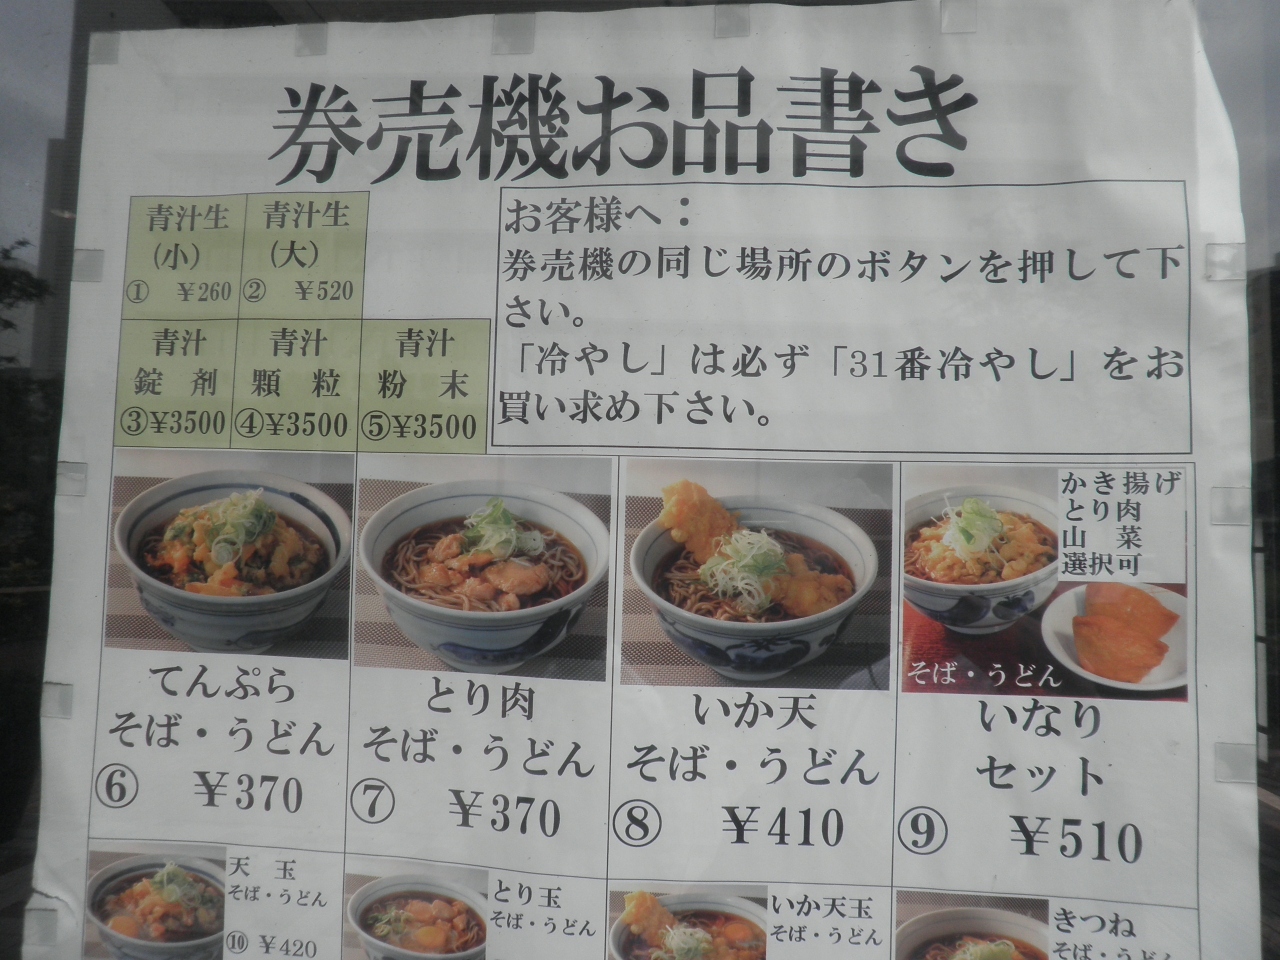 券売機お品書き
青汁生
(小)
① ¥260
青汁生
(大)
② ¥520
お客様へ：
券売機の同じ場所のボタンを押して下
さい。
「冷やし」は必ず「31番冷やし」をお
買い求め下さい。
青汁
錠 剤
③¥3500
青汁
顆 粒
④¥3500
青汁
粉 末
⑤¥3500
てんぷら
そば・うどん
⑥ ¥370
とり肉
そば・うどん
⑦ ¥370
いか天
そば・うどん
⑧ ¥410
かき揚げ
とり肉
山 菜
選択可
そば・うどん
いなり
セット
⑨ ¥510
天 玉
そば・うどん
⑩ ¥420
とり玉
そば・うどん
いか天玉
そば・うどん
きつね
そば・うどん